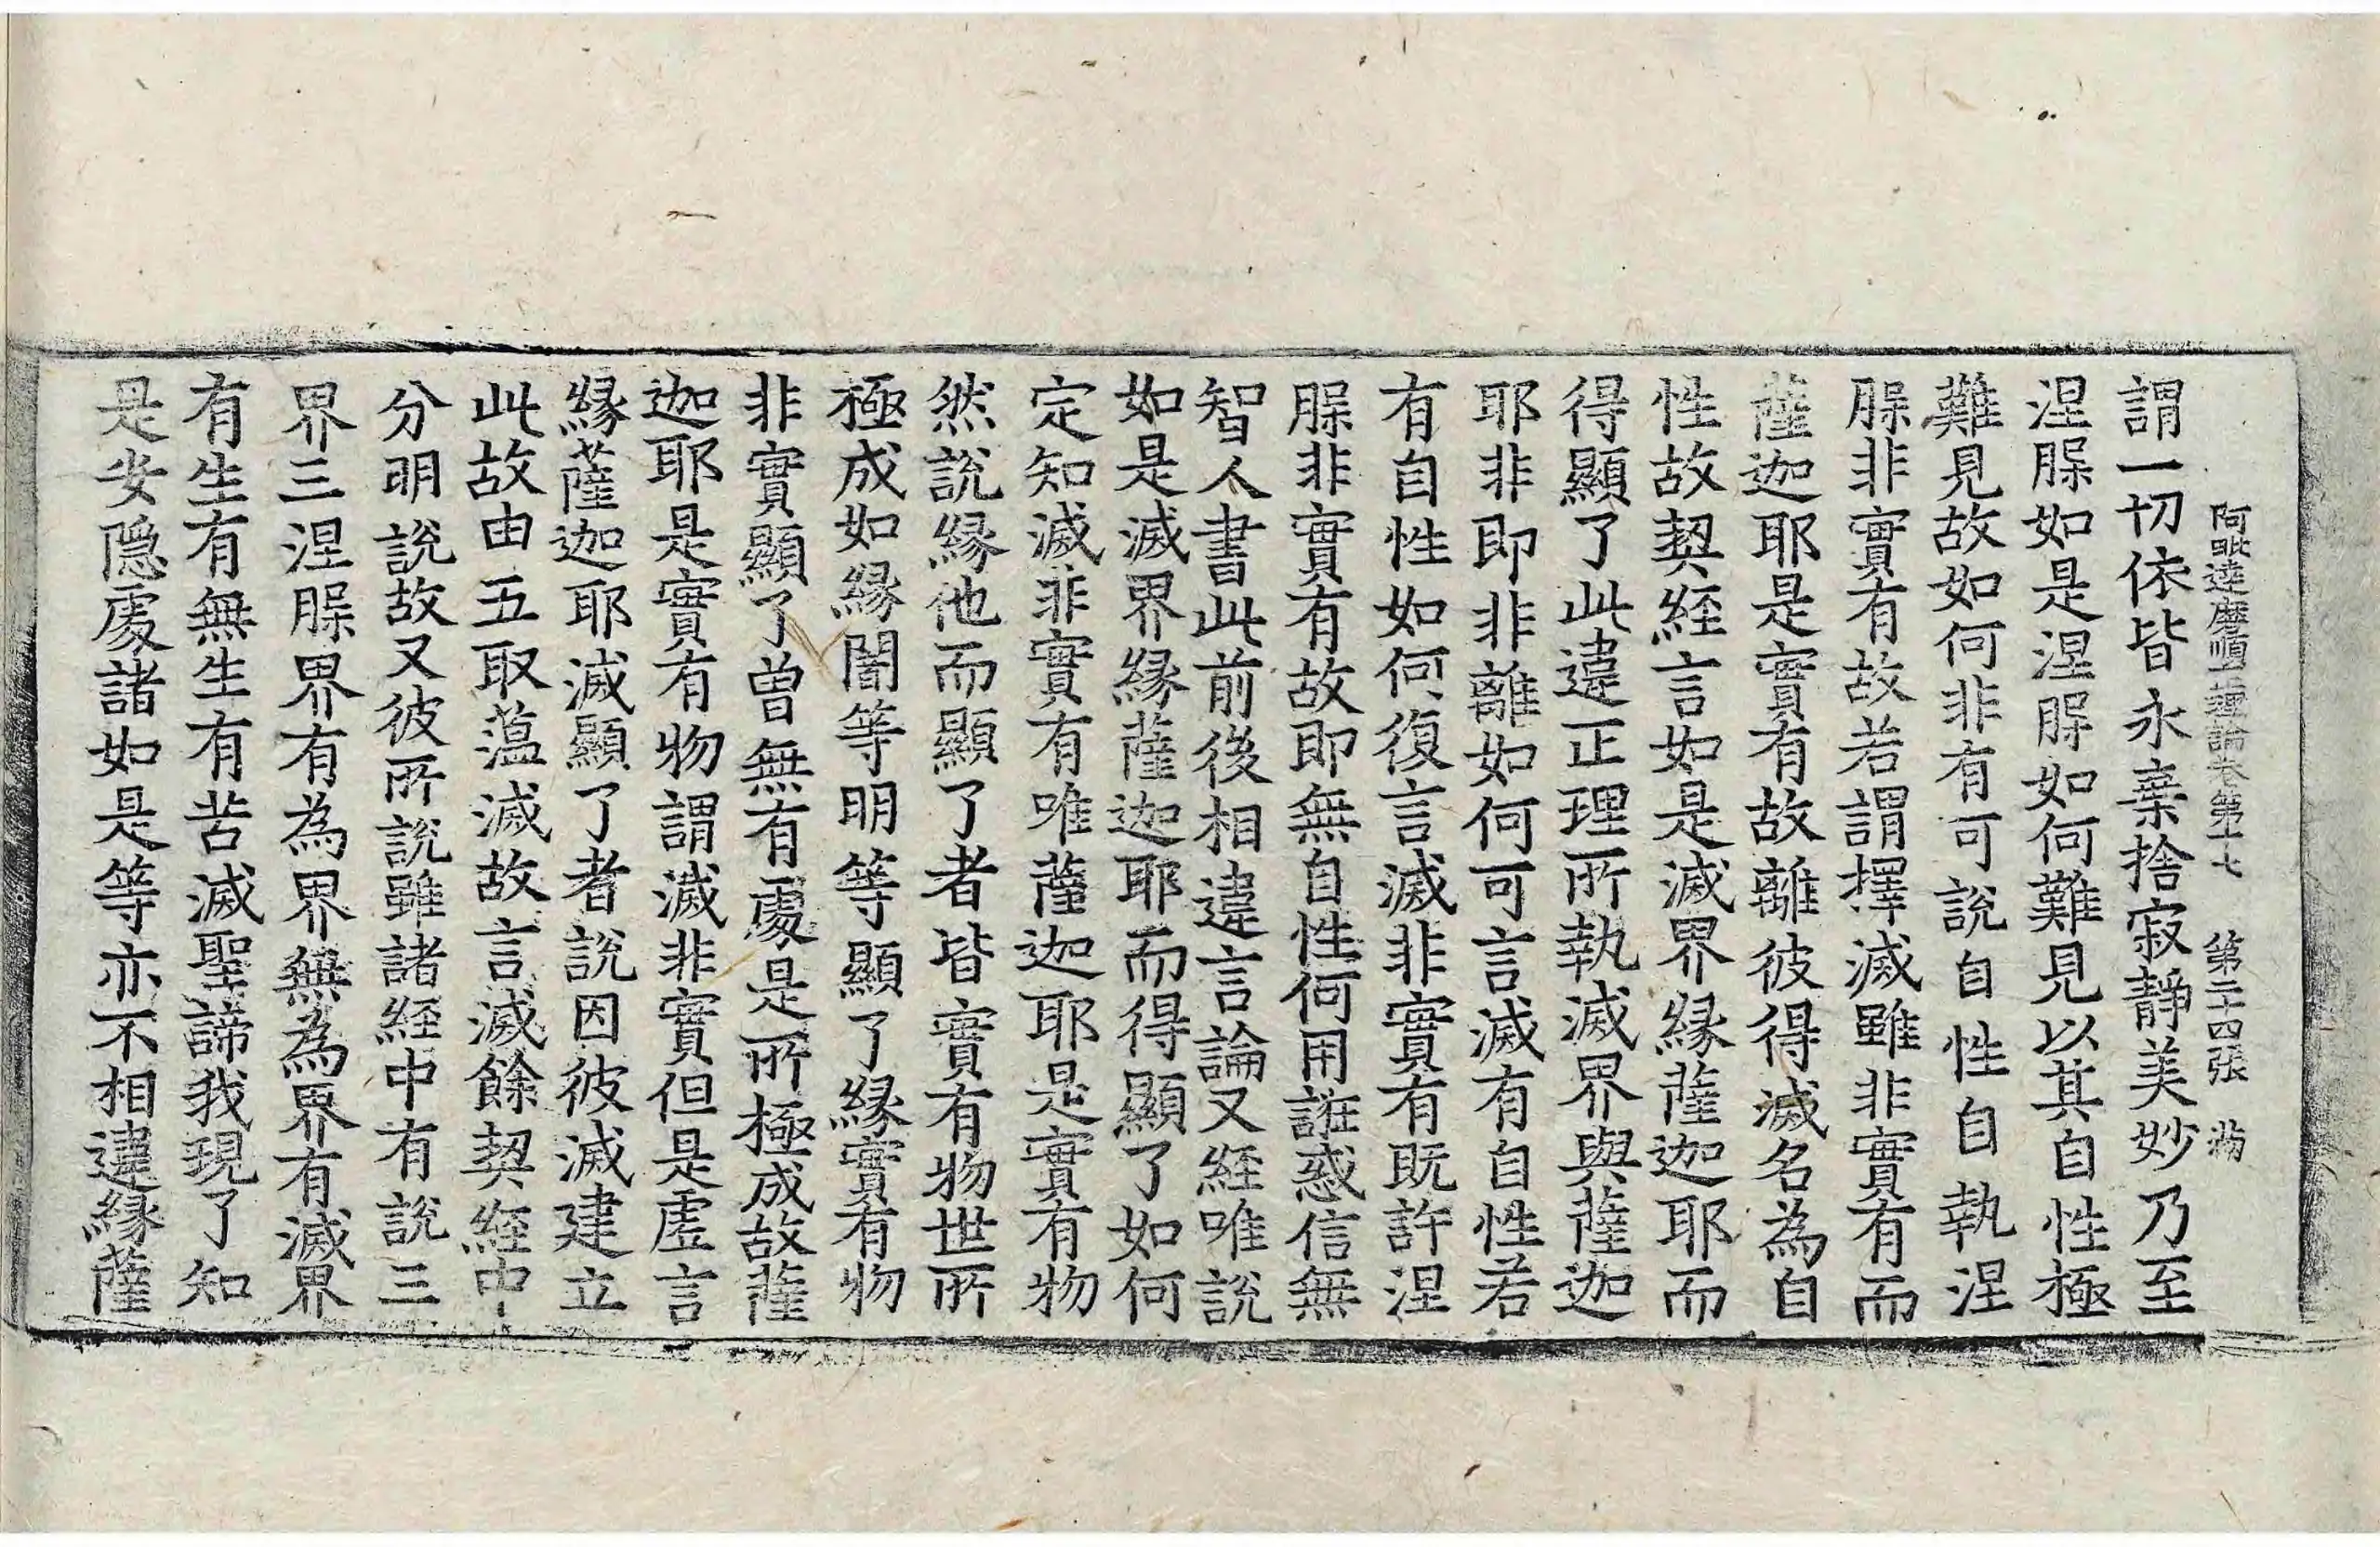 阿毗達磨順正理論卷第十七　第二十四張
謂一切依皆永棄捨寂靜美妙乃至
涅槃如是涅槃如何難見以其自性極
難見故如何非有可說自性自執涅
槃非實有故若謂擇滅雖非實有而
薩迦耶是實有故離彼得滅名為自
性故契經言如是滅界緣薩迦耶而
得顯了此違正理所執滅界與薩迦
耶非即非離如何可言滅有自性若
有自性如何復言滅非實有既許涅
槃非實有故即無自性何用誑惑信無
智人書此前後相違言論又經唯說
如是滅界緣薩迦耶而得顯了如何
定知滅非實有唯薩迦耶是實有物
然說緣他而顯了者皆實有物世所
極成如緣闇等明等顯了緣實有物
非實顯了曾無有處是所極成故薩
迦耶是實有物謂滅非實但是虛言
緣薩迦耶滅顯了者說因彼滅建立
此故由五取蘊滅故言滅餘契經中
分明說故又彼所說雖諸經中有說三
界三涅槃界有為界無為界有滅界
有生有無生有苦滅聖諦我現了知
是安隱處諸如是等亦不相違緣薩